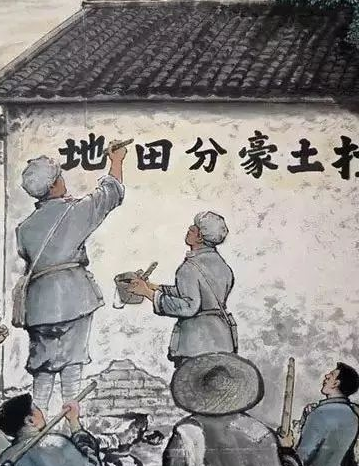 打土豪分田地